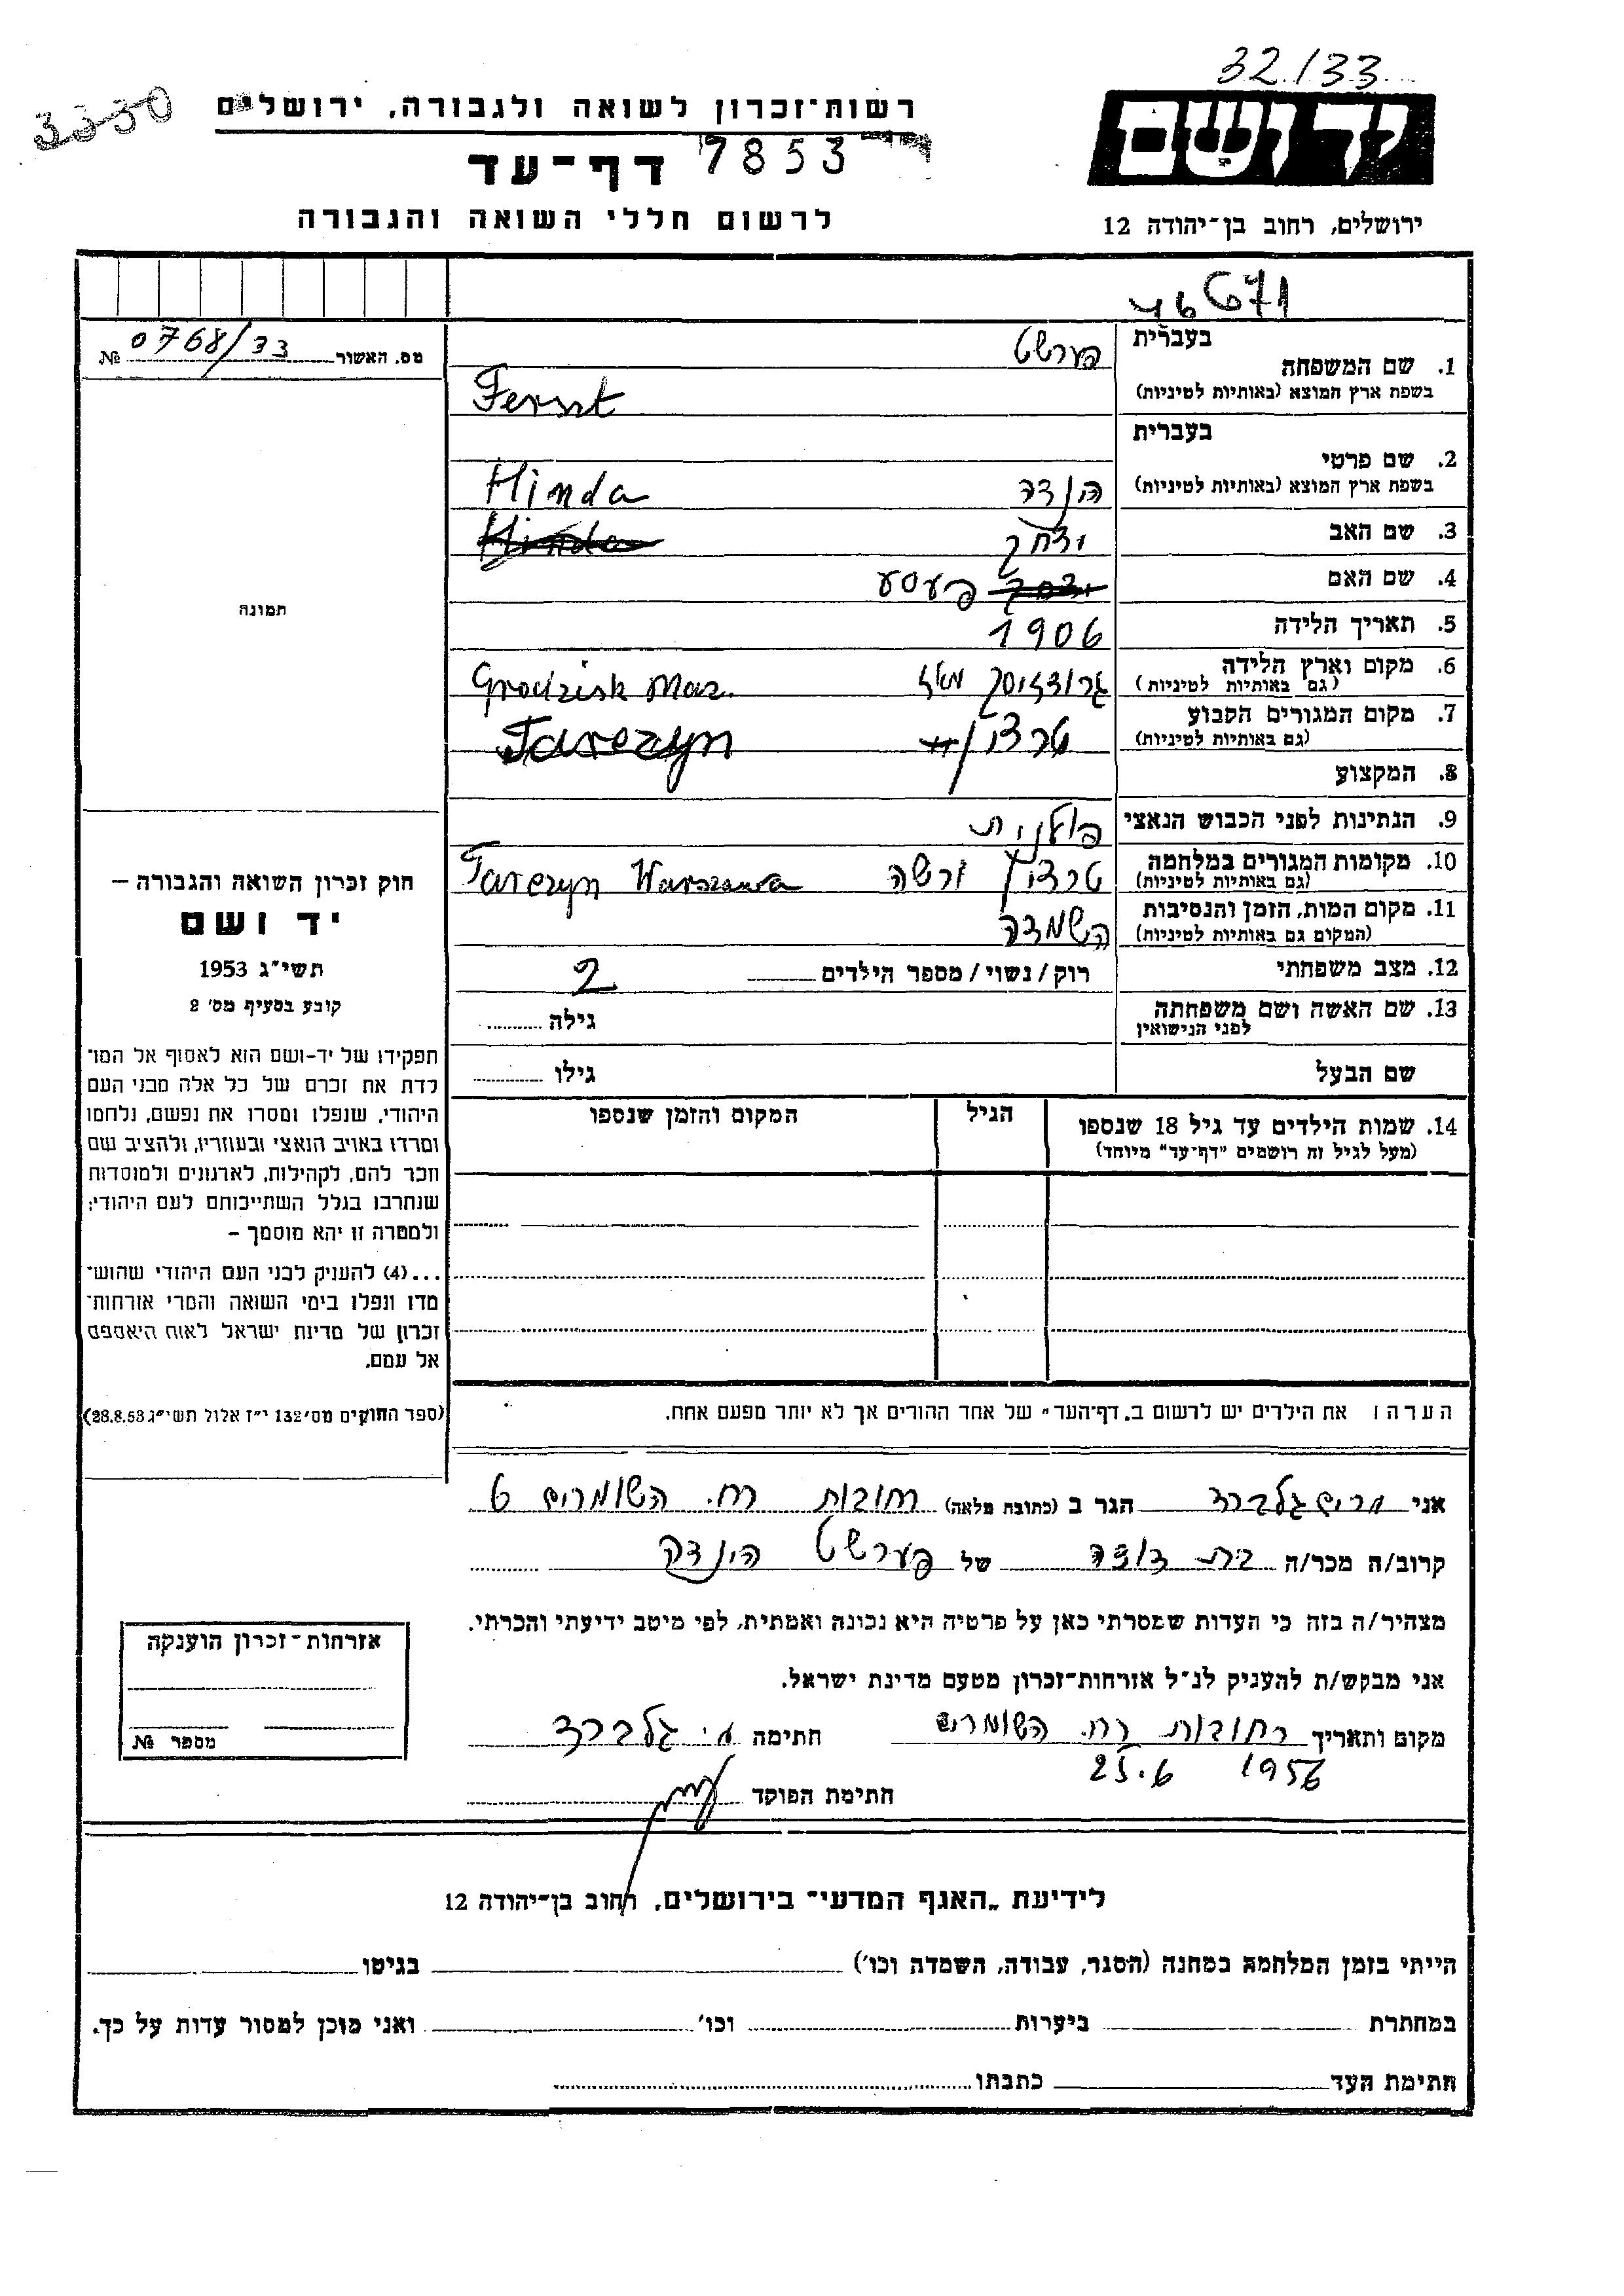 32/33
3330
רשות־זכרון לשואה ולגבורה, ירושלים
יד ושם
דף־עד
7853
לרשום חללי השואה והגבורה
ירושלים, רחוב בן־יהודה 12
46671
מס. האשור 0768/33 №
תמונה
בעברית פערשט
1. שם המשפחה
בשפת ארץ המוצא (באותיות לטיניות) Ferszt
בעברית
2. שם פרטי
בשפת ארץ המוצא (באותיות לטיניות) הנדה Hinda
3. שם האב יצחק Hinda
4. שם האם יצחק פעסע
5. תאריך הלידה 1906
6. מקום וארץ הלידה גרודזיסק מאז. Grodzisk Maz.
(גם באותיות לטיניות)
7. מקום המגורים הקבוע טרצין Tarczyn
(גם באותיות לטיניות)
8. המקצוע
9. הנתינות לפני הכבוש הנאצי פולנית
10. מקומות המגורים במלחמה טרצין ורשה Tarczyn Warszawa
(גם באותיות לטיניות)
11. מקום המות, הזמן והנסיבות השמדה
(המקום גם באותיות לטיניות)
12. מצב משפחתי רוק/נשוי/מספר הילדים 2
13. שם האשה ושם משפחתה גילה
לפני הנישואין
שם הבעל גילו
14. שמות הילדים עד גיל 18 שנספו הגיל המקום והזמן שנספו
(מעל לגיל זה רושמים "דף־עד" מיוחד)
הערה: את הילדים יש לרשום ב„דף־העד" של אחד ההורים אך לא יותר מפעם אחת.
חוק זכרון השואה והגבורה –
יד ושם
תשי"ג 1953
קובע בסעיף מס' 2
תפקידו של יד-ושם הוא לאסוף אל המו־
לדת את זכרם של כל אלה מבני העם
היהודי, שנפלו ומסרו את נפשם, נלחמו
ומרדו באויב הנאצי ובעוזריו, ולהציב שם
וזכר להם, לקהילות, לארגונים ולמוסדות
שנחרבו בגלל השתייכותם לעם היהודי;
ולמטרה זו יהא מוסמך –
...(4) להעניק לבני העם היהודי שהוש־
מדו ונפלו בימי השואה והמרי אזרחות־
זכרון של מדינת ישראל לאות היאספם
אל עמם.
(ספר החוקים מס' 132 י"ז אלול תשי"ג 28.8.53)
אני מרים גלברד הגר ב (כתובת מלאה) רחובות רח. השומרים 6
קרוב/ה מכר/ה בת דודה של פערשט הינדה
מצהיר/ה בזה כי העדות שמסרתי כאן על פרטיה היא נכונה ואמתית, לפי מיטב ידיעתי והכרתי.
אני מבקש/ת להעניק לנ"ל אזרחות־זכרון מטעם מדינת ישראל.
מקום ותאריך רחובות רח. השומרים חתימה מ. גלברד
25.6 1956
חתימת הפוקד
אזרחות־זכרון הוענקה
מספר №
לידיעת „האגף המדעי" בירושלים, רחוב בן־יהודה 12
הייתי בזמן המלחמה במחנה (הסגר, עבודה, השמדה וכו') בגיטו
במחתרת ביערות וכו' ואני מוכן למסור עדות על כך.
חתימת העד כתבתו